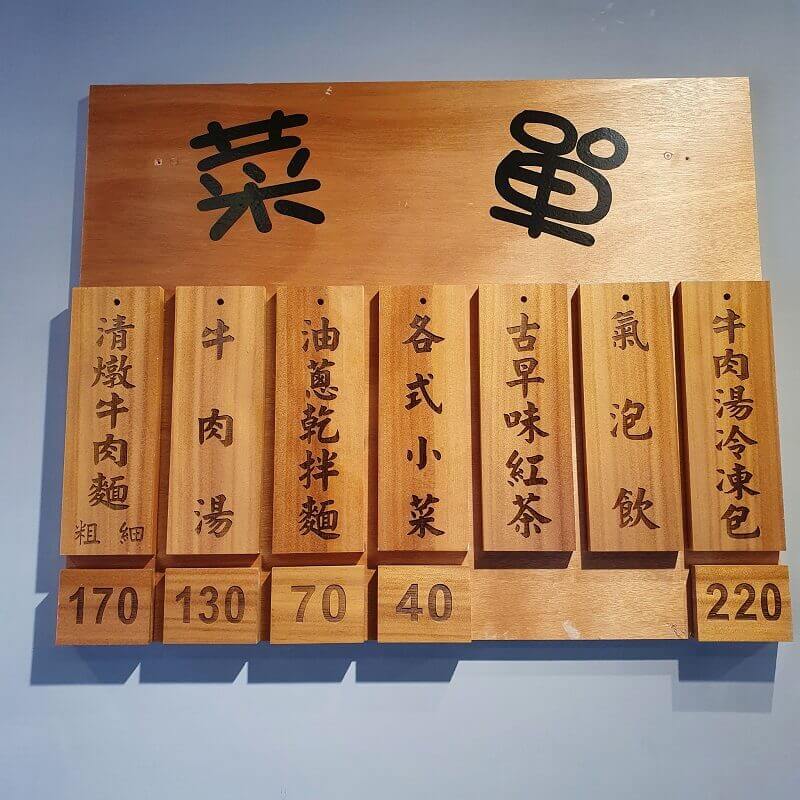 菜單
清燉牛肉麵
粗 細
170
牛肉湯
130
油蔥乾拌麵
70
各式小菜
40
古早味紅茶
氣泡飲
牛肉湯冷凍包
220